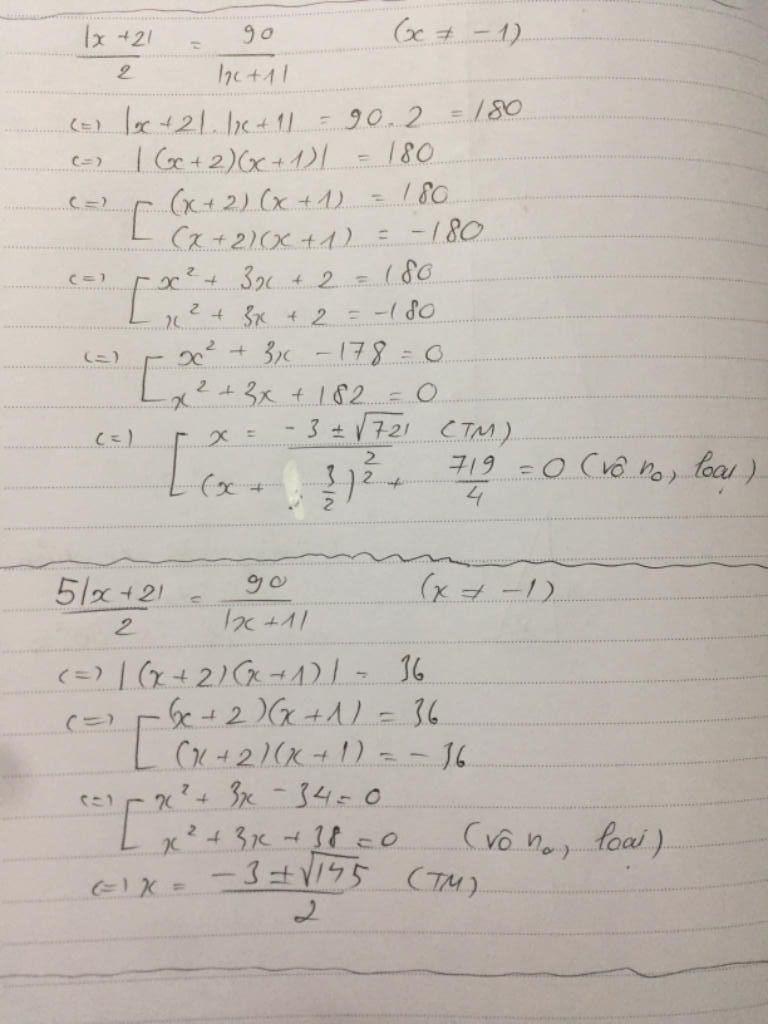 |x+2|/2 = 90/|x+1| (x ≠ -1)
<=> |x+2|.|x+1| = 90.2 = 180
<=> |(x+2)(x+1)| = 180
<=> [ (x+2)(x+1) = 180
(x+2)(x+1) = -180
<=> [ x² + 3x + 2 = 180
x² + 3x + 2 = -180
<=> [ x² + 3x - 178 = 0
x² + 3x + 182 = 0
<=> [ x = (-3 ± √721)/2 (TM)
(x + 3/2)² + 719/4 = 0 (vô no, loại)
5|x+2|/2 = 90/|x+1| (x ≠ -1)
<=> |(x+2)(x+1)| = 36
<=> [ (x+2)(x+1) = 36
(x+2)(x+1) = -36
<=> [ x² + 3x - 34 = 0
x² + 3x + 38 = 0 (vô no, loại)
<=> x = (-3 ± √145)/2 (TM)